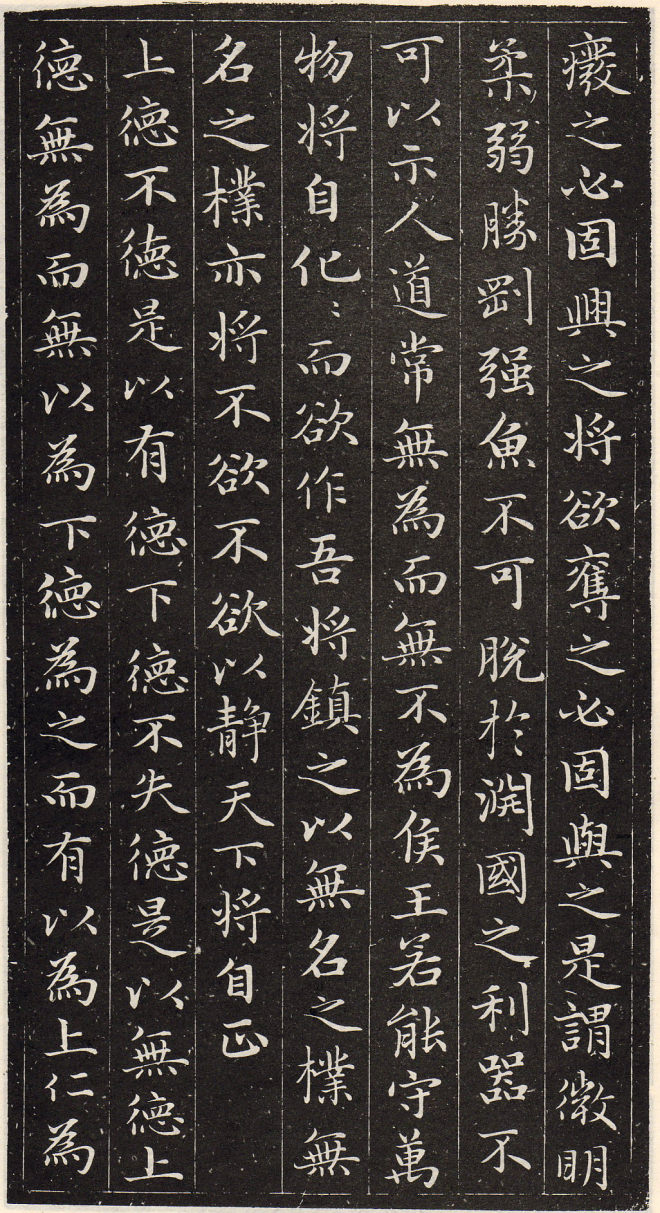 癈之必固興之将欲奪之必固與之是謂微明
柔弱勝剛强魚不可脱於渊國之利器不
可以示人道常無為而無不為侯王若能守萬
物将自化〻而欲作吾将鎮之以無名之樸無
名之樸亦将不欲不欲以靜天下将自正
上德不德是以有德下德不失德是以無德上
德無為而無以為下德為之而有以為上仁為